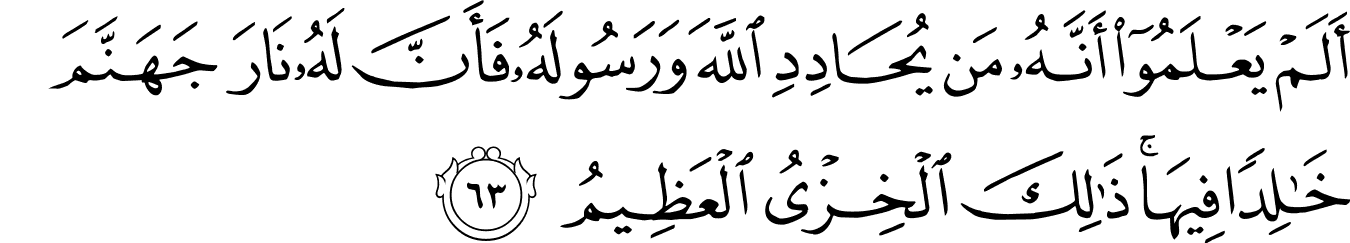 أَلَمْ يَعْلَمُوٓا۟ أَنَّهُۥ مَن يُحَادِدِ ٱللَّهَ وَرَسُولَهُۥ فَأَنَّ لَهُۥ نَارَ جَهَنَّمَ
خَـٰلِدًا فِيهَا ۚ ذَٰلِكَ ٱلْخِزْىُ ٱلْعَظِيمُ ٦٣